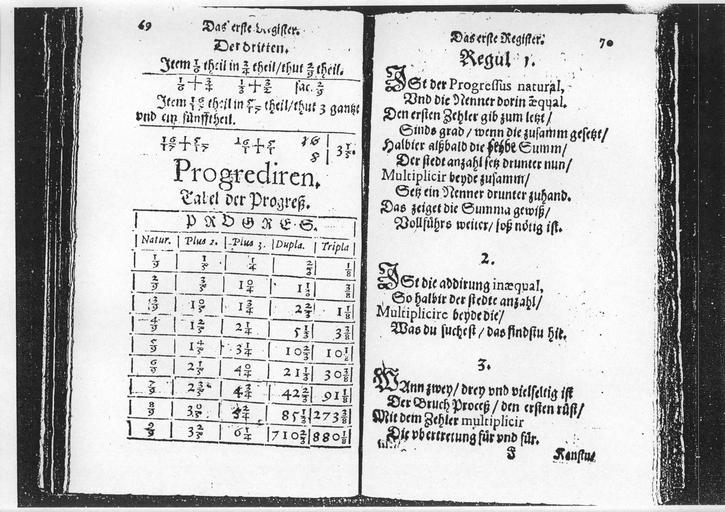 69
Das erste Register.
Der dritten.
Item 1/6 theil in 3/4 theil/thut 2/9 theil.
1/6 + 3/4 1/6 + 3/2 fac. 2/9
Item 16/17 theil in 5/17 theil/thut 3 gantz
vnd ein fünfftheil.
16/17 + 5/17 16/1 + 5/1 16 3 1/5.
Progrediren.
Tabel der Progreß.
P R O G R E S.
Natur. Plus 2. Plus 3. Dupla. Tripla
1/9 1/5 1/4 2/3 1/8
2/9 3/5 1 0/4 1 1/3 3/8
3/9 1 0/5 1 3/4 2 2/3 1 1/8
4/9 1 2/5 2 2/4 5 1/3 3 3/8
5/9 1 4/5 3 1/4 10 2/3 10 1/8
6/9 2 1/5 4 0/4 21 1/3 30 3/8
7/9 2 3/5 4 3/4 42 2/3 91 1/8
8/9 3 0/5 5 2/4 85 1/3 273 3/8
9/9 3 2/5 6 1/4 710 2/3 880 1/8
Das erste Register. 70
Regul 1.
ISt der Progressus natural,
Vnd die Nenner dorin æqual.
Den ersten Zehler gib zum letzt/
Sinds grad/wenn die zusamm gesetzt/
Halbier alßbald die Summ/
Der stedt anzahl setz drunter nun/
Multiplicir beyde zusamm/
Setz ein Nenner drunter zuhand.
Das zeiget die Summa gewiß/
Vollführs weiter/soß nötig ist.
2.
ISt die addirung inæqual,
So halbir der stedte anzahl/
Multiplicire beyde die/
Was du suchest/das findstu hie.
3.
WAnn zwey/drey vnd vielfeltig ist
Der Bruch Proceß/den ersten rüst/
Mit dem Zehler multiplicir
Die vbertretung für vnd für.
J Kanstu